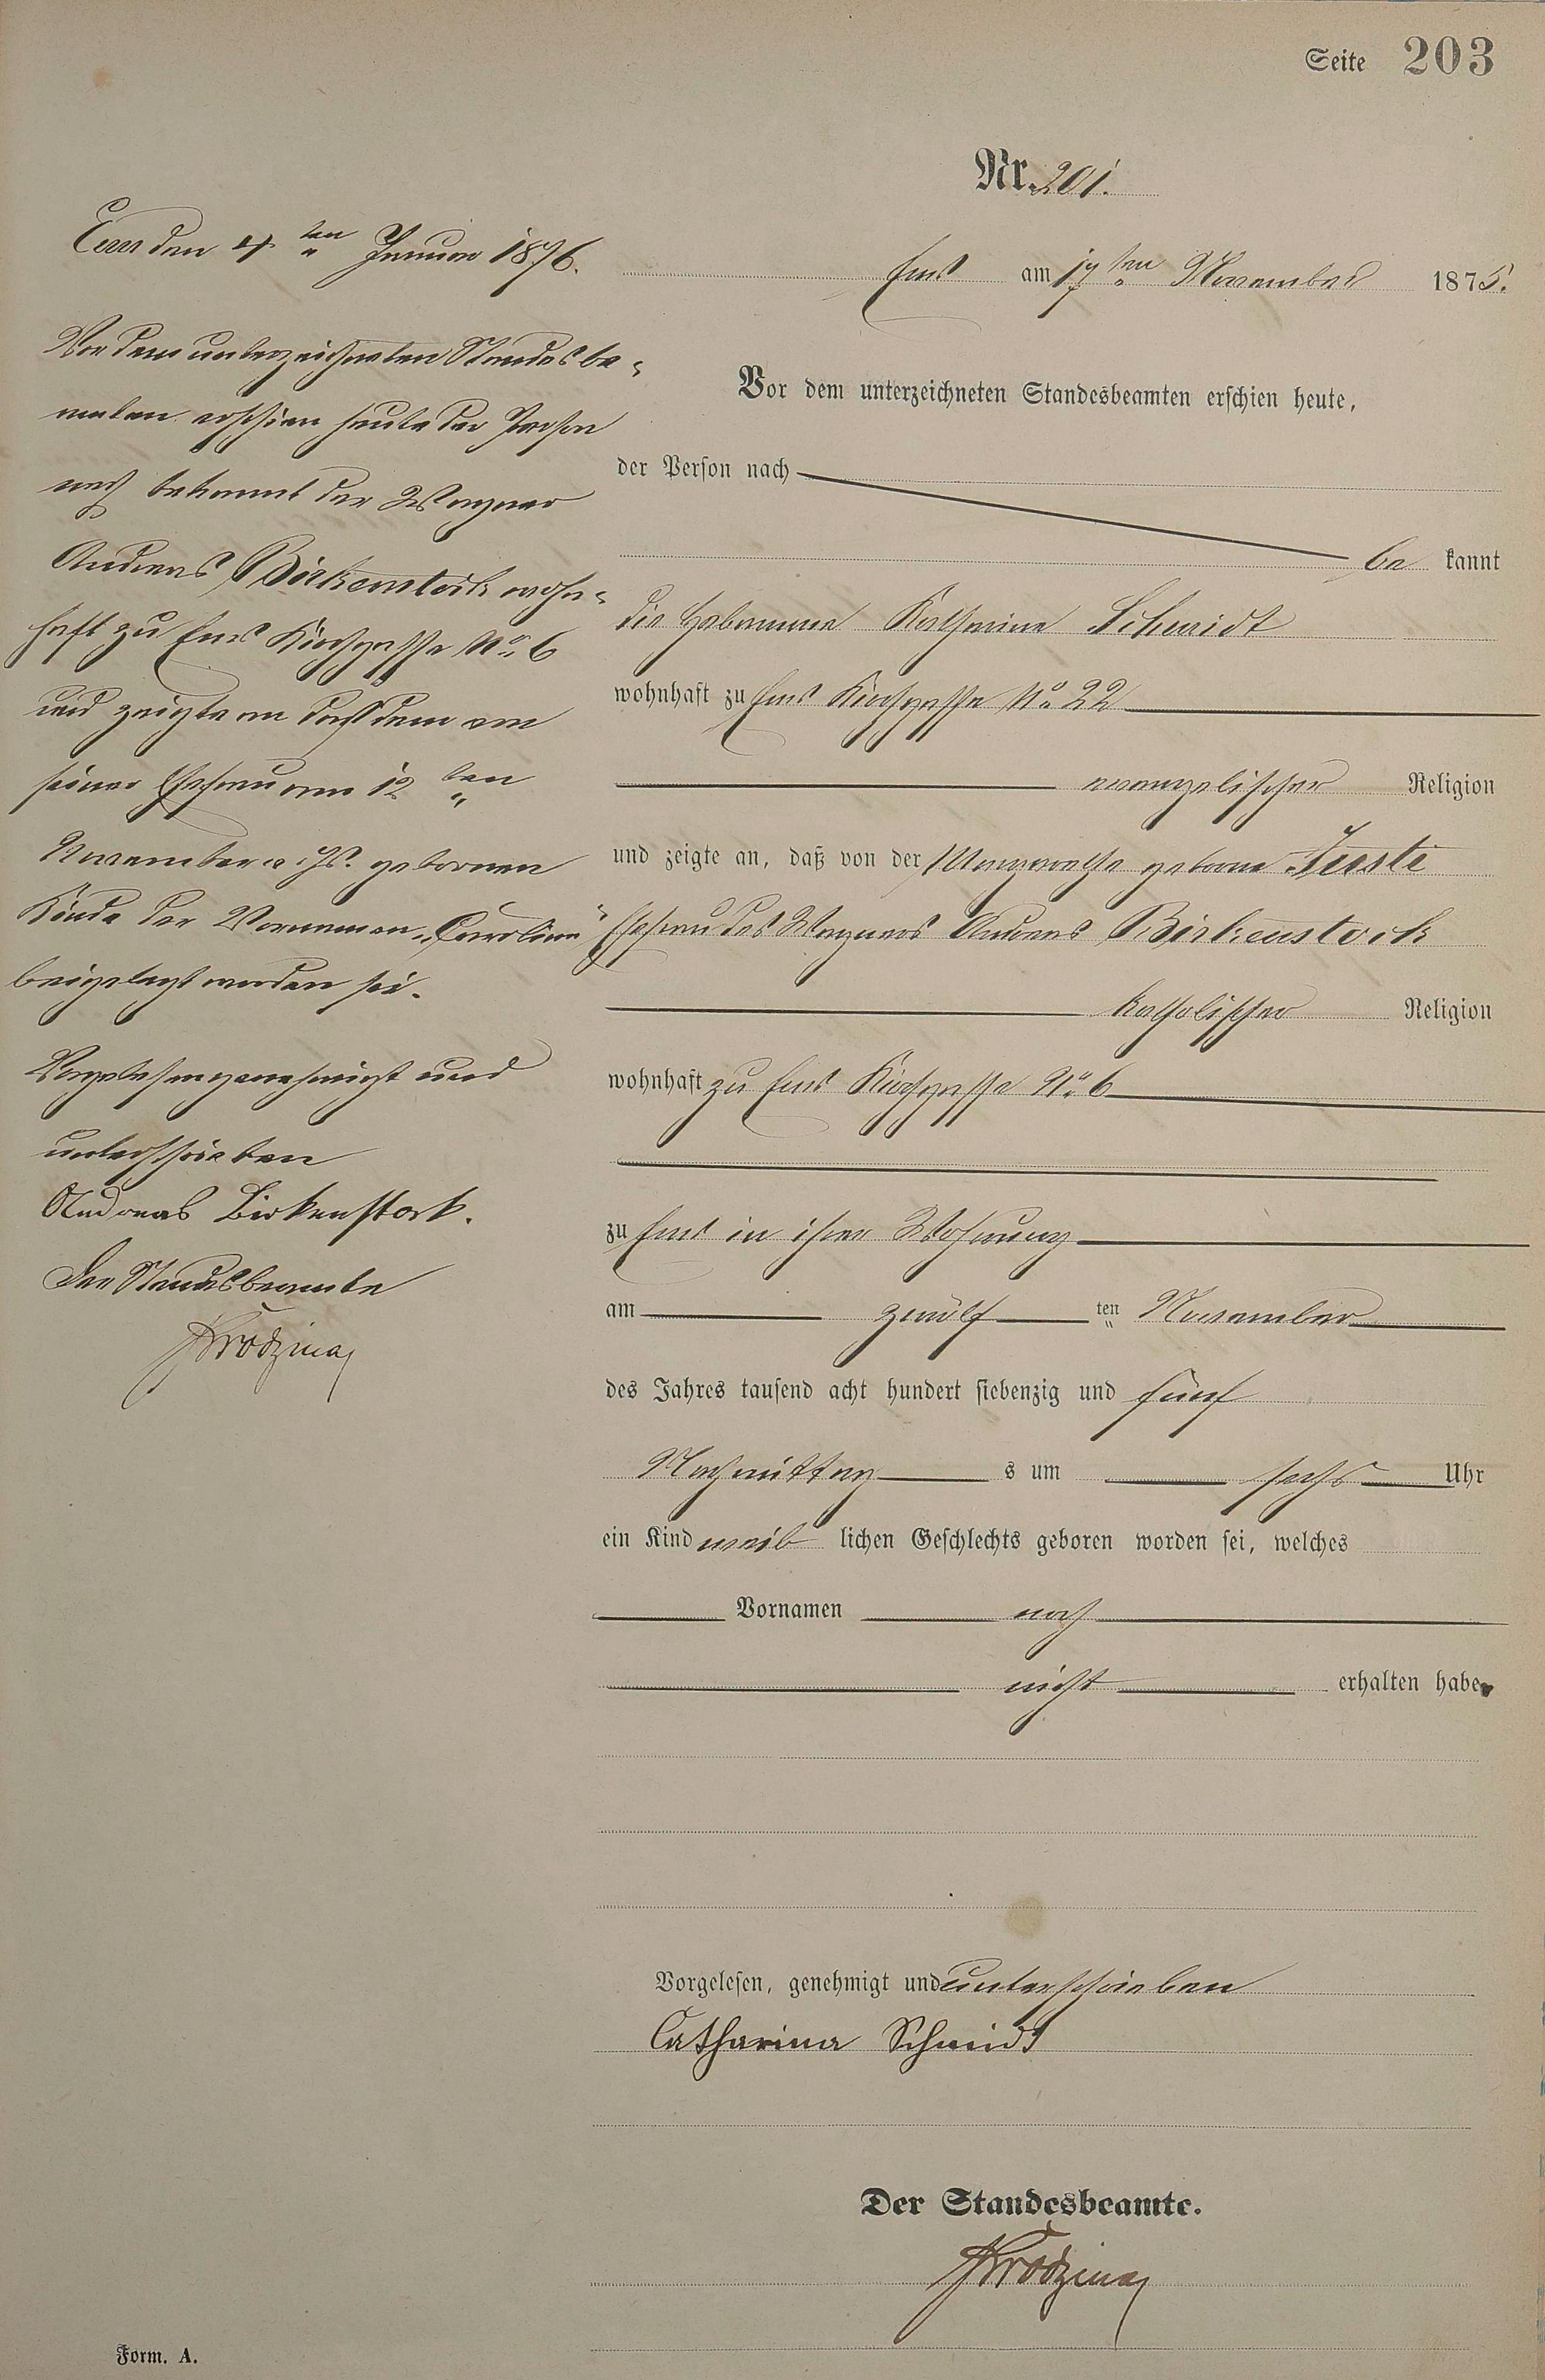 Seite 203
Nr. 201.
Ems am 17ten November 1875.
Vor dem unterzeichneten Standesbeamten erschien heute,
der Person nach
be kannt
die Hebamme Katharina Schmidt
wohnhaft zu Ems Kirchgasse No 22
evangelischer Religion
und zeigte an, daß von der Margarethe geborne Justi
Ehefrau des Wagners Andreas Birkenstock
katholischer Religion
wohnhaft zu Ems Kirchgasse No 6
zu Ems in ihrer Wohnung
am zwölf ten November
des Jahres tausend acht hundert siebenzig und fünf
Nachmittag s um sechs Uhr
ein Kind weib lichen Geschlechts geboren worden sei, welches
Vornamen noch
nicht erhalten habe
Vorgelesen, genehmigt und unterschrieben
Catharina Schmidt
Der Standesbeamte.
Ems den 4ten Januar 1876.
Vor dem unterzeichneten Standesbe=
amten erschien heute der Person
nach bekannt der Wagner
Andreas Birkenstock wohn=
haft zu Ems Kirchgasse No 6
und zeigte an daß dem von
seiner Ehefrau am 12ten
November v. Js. gebornen
Kinde der Vornamen "Caroline"
beigelegt worden sei.
Vorgelesen genehmigt und
unterschrieben
Andreas Birkenstock.
Der Standesbeamte
Form. A.